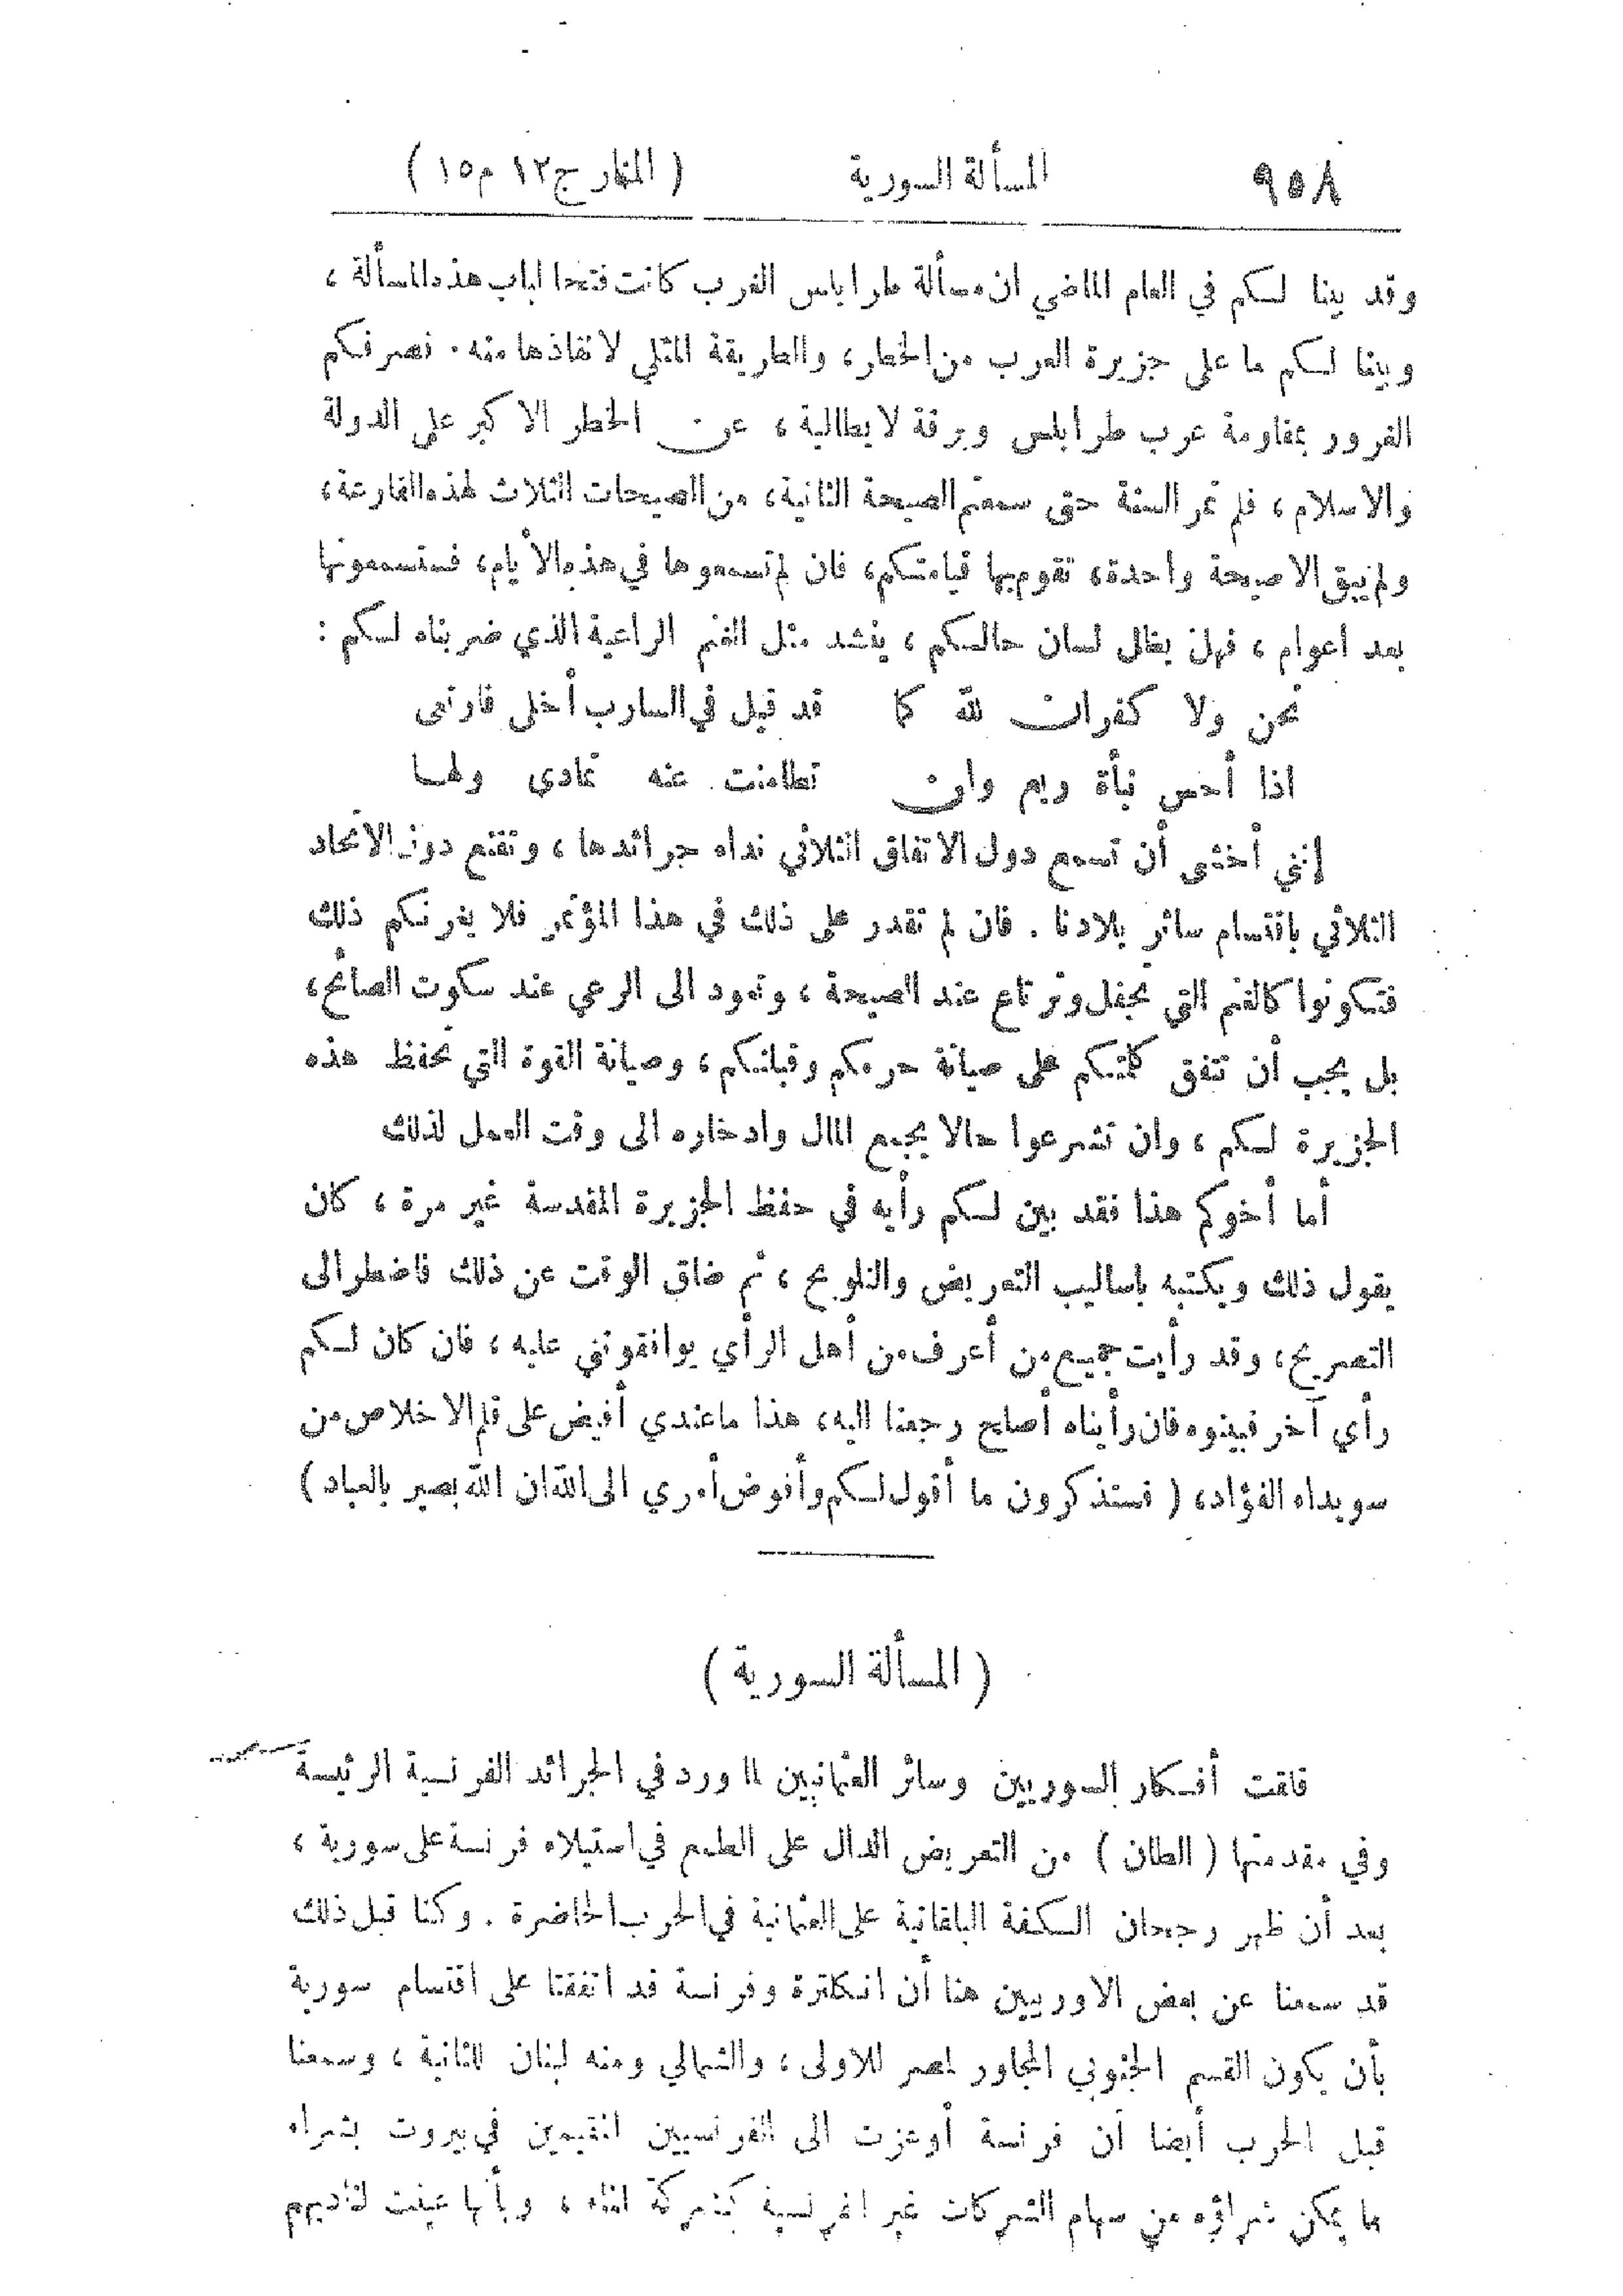 ٩٥٨ المسألة السورية ( المنار ج١٢ م١٥ )
وقد بينا لكم في العام الماضي ان مسألة طرابلس الغرب كانت فتحا لباب هذه المسألة ،
وبينا لكم ما على جزيرة العرب من الخطر ، والطريقة المثلى لانقاذها منه . فصرفكم
الغرور بمقاومة عرب طرابلس وبرقة لايطالية ، عن الخطر الاكبر على الدولة
والاسلام ، فلم تمر السنة حتى سمعتم الصيحة الثانية ، من الصيحات الثلاث لهذه القارعة ،
ولم يبق الا صيحة واحدة ، تقوم بها قيامتكم ، فان لم تسمعوها في هذه الأيام ، فستسمعونها
بعد اعوام ، فهل يظل لسان حالكم ، ينشد مثل الغنم الراعية الذي ضربناه لكم :
نحن ولا كفران لله كما قد قيل في السارب أخلي فارتعى
اذا أحس نبأة ريع وان تطامنت عنه تمادى ولها
إنني أخشى أن تسمع دول الاتفاق الثلاثي نداء جرائدها ، وتقنع دول الاتحاد
الثلاثي باقتسام سائر بلادنا . فان لم تقدر على ذلك في هذا المؤتمر فلا يغرنكم ذلك
فتكونوا كالغنم التي تجفل وترتاع عند الصيحة ، وتعود الى الرعي عند سكوت الصائح ،
بل يجب أن تتفق كلمتكم على صيانة حرمكم وقبلتكم ، وصيانة القوة التي تحفظ هذه
الجزيرة لكم ، وان تشرعوا حالا بجمع المال وادخاره الى وقت العمل لذلك
أما أخوكم هذا فقد بين لكم رأيه في حفظ الجزيرة المقدسة غير مرة ، كان
يقول ذلك ويكتبه باساليب التعريض والتلويح ، ثم ضاق الوقت عن ذلك فاضطر الى
التصريح ، وقد رأيت جميع من أعرف من أهل الرأي يوافقونني عليه ، فان كان لكم
رأي آخر فبينوه فان رأيناه أصلح رجعنا اليه ، هذا ماعندي أفيض على قلم الاخلاص من
سويداء الفؤاد ، ( فستذكرون ما أقول لكم وأفوض أمري الى الله ان الله بصير بالعباد )
( المسألة السورية )
قلقت أفكار السوريين وسائر العثمانيين لما ورد في الجرائد الفرنسية الرئيسة
وفي مقدمتها ( الطان ) من التعريض الدال على الطمع في استيلاء فرنسة على سورية ،
بعد أن ظهر رجحان الكفة البلقانية على العثمانية في الحرب الحاضرة . وكنا قبل ذلك
قد سمعنا عن بعض الاوربيين هنا أن انكلترة وفرنسة قد اتفقتا على اقتسام سورية
بأن يكون القسم الجنوبي المجاور لمصر للاولى ، والشمالي ومنه لبنان للثانية ، وسمعنا
قبل الحرب أيضا أن فرنسة أوعزت الى الفرنسيين المقيمين في بيروت بشراء
ما يمكن شراؤه من سهام الشركات غير الفرنسية كشركة الماء ، وبأنها عينت